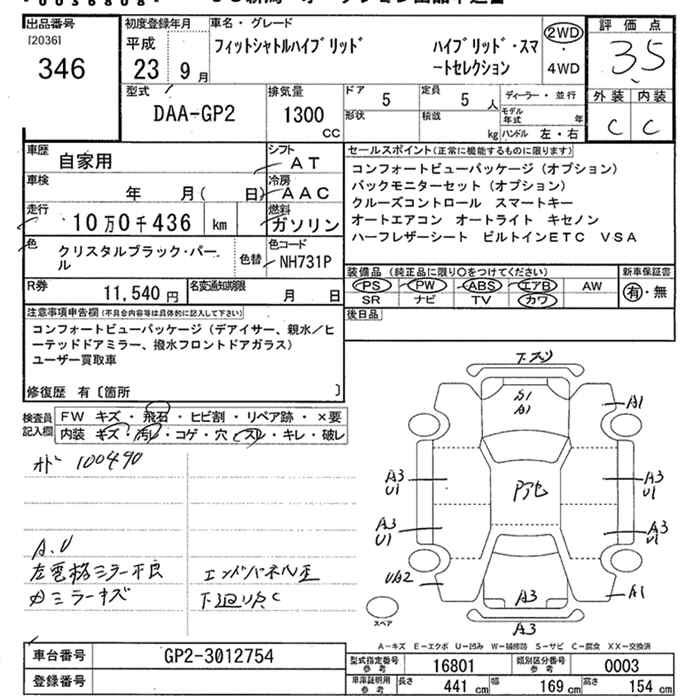 出品番号
[2036]
346
初度登録年月
平成
23年 9月
車名・グレード
フィットシャトルハイブリッド
ハイブリッド・スマートセレクション
2WD
・
4WD
評価点
3.5
外装 内装
C C
型式
DAA-GP2
排気量
1300
CC
ドア 5
形状
定員 5人
積載 kg
ディーラー・並行
モデル年式 年
ハンドル 左・右
車歴
自家用
シフト
AT
車検
年 月( 日)
冷房
AAC
走行
10万0千436 km
燃料
ガソリン
色
クリスタルブラック・パール
色替
色コード
NH731P
R券
11,540円
名変通知期限
月 日
セールスポイント(正常に機能するものに限ります)
コンフォートビューパッケージ(オプション)
バックモニターセット(オプション)
クルーズコントロール スマートキー
オートエアコン オートライト キセノン
ハーフレザーシート ビルトインETC VSA
装備品(純正品に限り○をつけてください)
PS PW ABS エアB AW
SR ナビ TV カワ
新車保証書
有・無
後日品
注意事項申告欄(不具合内容等は具体的に記入して下さい)
コンフォートビューパッケージ(デアイサー、親水/ヒ
ーテッドドアミラー、撥水フロントドアガラス)
ユーザー買取車
修復歴 有〔箇所 〕
検査員記入欄
FW キズ・飛石・ヒビ割・リペア跡・×要
内装 キズ・汚レ・コゲ・穴・スレ・キレ・破レ
100490
A.U
左電格ミラー不良
エンドパネル歪
ミラーキズ
下廻リサC
A1
A1
A3
U1
A3
U1
A3
U1
A3
U1
UA2
A1
A3
A3
スペア
A-キズ E-エクボ U-凹み W-補修跡 S-サビ C-腐食 XX-交換済
車台番号
GP2-3012754
登録番号
型式指定番号
参考
16801
類別区分番号
参考
0003
車庫証明用
参考
長さ 441 cm
幅 169 cm
高さ 154 cm